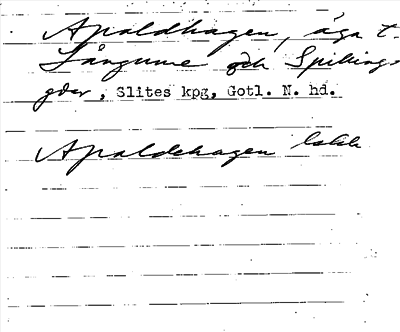 Apaldhagen, äga t.
Långume och Spikings
gdar, Slites kpg, Gotl. N. hd.
Apaldehagen